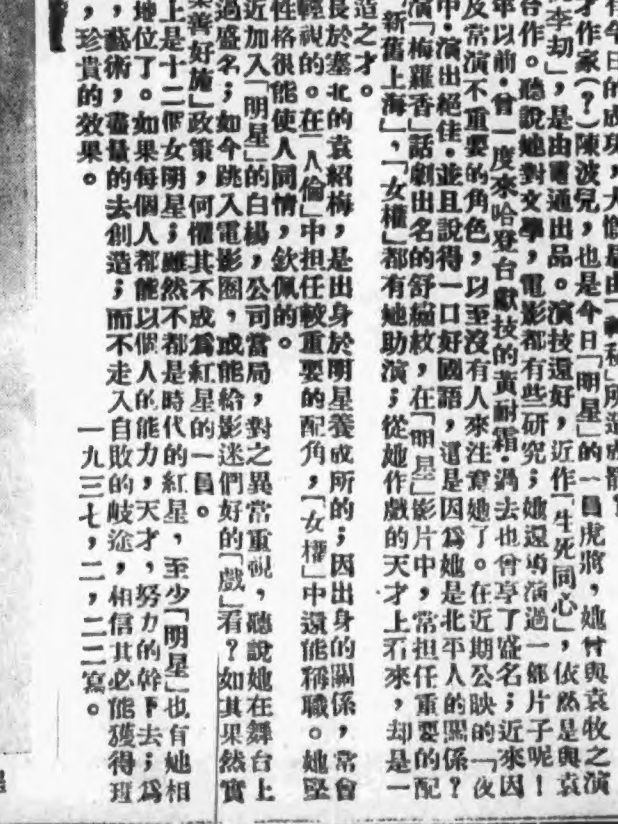 有今日的成功,大槪是由所造成罷?
才作家(?)陳波兒,也是今日「明星」的一員虎將,她曾與袁牧之演
李刧」,是由電通出品。演技還好,近作「生死同心」,依然是與袁
合作。聽說她對文學,電影都有些研究;她還導演過一部片子呢!
年以前,曾一度來哈登台獻技的黃耐霜,過去也曾享了盛名;近來因
及常演不重要的角色,以至沒有人來注意她了。在近期公映的「夜
中,演出絕佳。並且說得一口好國語,這是因爲她是北平人的關係?
演「梅羅香」話劇出名的舒繡紋,在「明星」影片中,常担任重要的配
「新舊上海」,「女權」都有她助演;從她作戲的天才上看來,却是一
造之才。
長於塞北的袁紹梅,是出身於明星養成所的;因出身的關係,常會
輕視的。在「人倫」中担任較重要的配角,「女權」中還能稱職。她堅
性格很能使人同情,欽佩的。
近加入「明星」的白楊,公司當局,對之異常重視,聽說她在舞台上
過盛名;如今跳入電影圈,或能給影迷們好的「戲」看?如其果然實
樂善好施」政策,何懼其不成爲紅星的一員。
上是十二個女明星;雖然不都是時代的紅星,至少「明星」也有她相
地位了。如果每個人都能以個人的能力,天才,努力的幹下去;爲
,藝術,盡量的去創造;而不走入自敗的岐途,相信其必能獲得班
,珍貴的效果。
一九三七,二,二二寫。